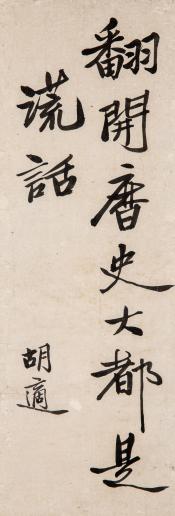 翻開曆史大都是
谎話
胡適